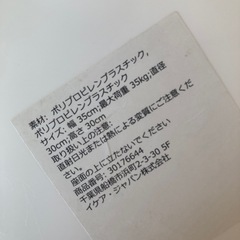 素材: ポリプロピレンプラスチック,
ポリプロピレンプラスチック
サイズ: 幅 35cm;最大荷重 35kg;直径
30cm;高さ 30cm
取り扱い上の注意:
直射日光または熱による変質にご注意くだ
さい。
座面の上に立たないでください
商品番号: 30176644
千葉県船橋市浜町2-3-30 5F
イケア・ジャパン株式会社